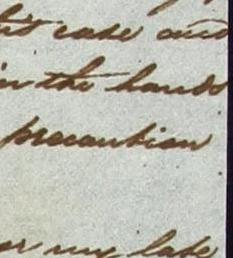 case and
in the hands
precaution
or my late